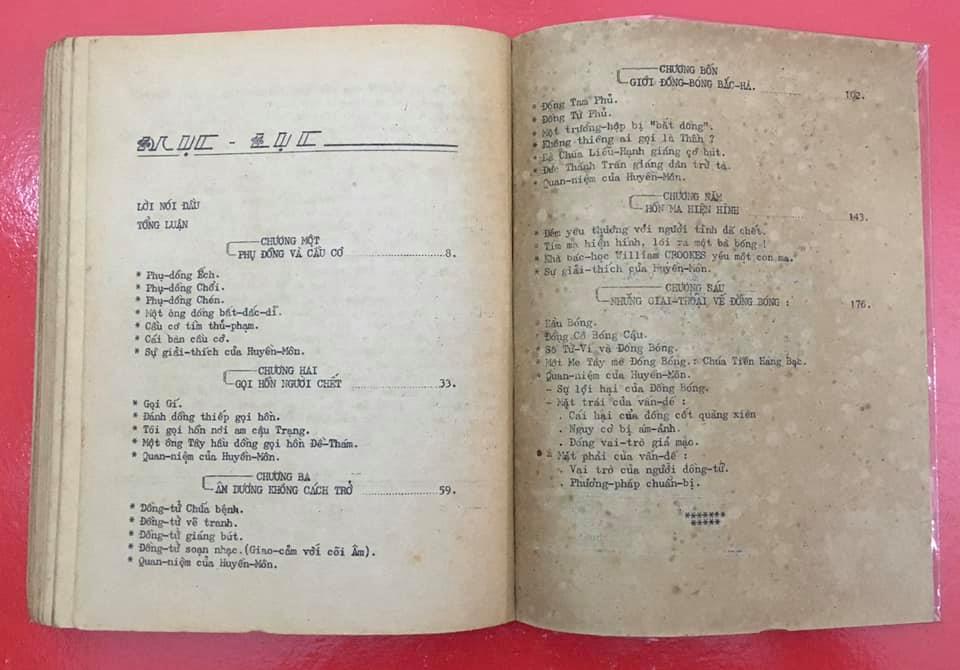 MỤC - LỤC
LỜI NÓI ĐẦU
TỔNG LUẬN
CHƯƠNG MỘT
PHỤ ĐỒNG VÀ CẦU CƠ ..................8.
* Phụ-đồng Ếch.
* Phụ-đồng Chổi.
* Phụ-đồng Chén.
* Một ông đồng bất-đắc-dĩ.
* Cầu cơ tìm thủ-phạm.
* Cái bàn cầu cơ.
* Sự giải-thích của Huyền-Môn.
CHƯƠNG HAI
GỌI HỒN NGƯỜI CHẾT ..................33.
* Gọi Gí.
* Đánh đồng thiếp gọi hồn.
* Tôi gọi hồn nơi am cậu Trạng.
* Một ông Tây hầu đồng gọi hồn Đề-Thám.
* Quan-niệm của Huyền-Môn.
CHƯƠNG BA
ÂM DƯƠNG KHÔNG CÁCH TRỞ ..................59.
* Đồng-tử Chữa bệnh.
* Đồng-tử vẽ tranh.
* Đồng-tử giáng bút.
* Đồng-tử soạn nhạc.(Giao-cảm với cõi Âm).
* Quan-niệm của Huyền-Môn.
CHƯƠNG BỐN
GIỚI ĐỒNG-BÓNG BẮC-HÀ. ..................102.
* Đồng Tam Phủ.
* Đồng Tứ Phủ.
* Một trường-hợp bị "bắt đồng".
* Không thiêng ai gọi là Thần ?
* Bà Chúa Liễu-Hạnh giáng cơ bút.
* Đức Thánh Trần giáng đàn trừ tà.
* Quan-niệm của Huyền-Môn.
CHƯƠNG NĂM
HỒN MA HIỆN HÌNH ..................143.
* Đêm yêu thương với người tình đã chết.
* Tìm ma hiện hình, lòi ra một bà bóng !
* Nhà bác-học William CROOKES yêu một con ma.
* Sự giải-thích của Huyền-Môn.
CHƯƠNG SÁU
NHỮNG GIAI-THOẠI VỀ ĐỒNG BÓNG : ..................176.
* Hầu Bóng.
* Đồng Cô Bóng Cậu.
* Số Tử-Vi và Đồng Bóng.
* Một Me Tây mê Đồng Bóng. : Chúa Tiên Hàng Bạc.
* Quan-niệm của Huyền-Môn.
- Sự lợi hại của Đồng Bóng.
- Mặt trái của vấn-đề :
. Cái hại của đồng cốt quàng xiên
. Nguy cơ bị ám-ảnh.
. Đóng vai-trò giả mạo.
- Mặt phải của vấn-đề :
. Vai trò của người đồng-tử.
. Phương-pháp chuẩn-bị.
*******
*****